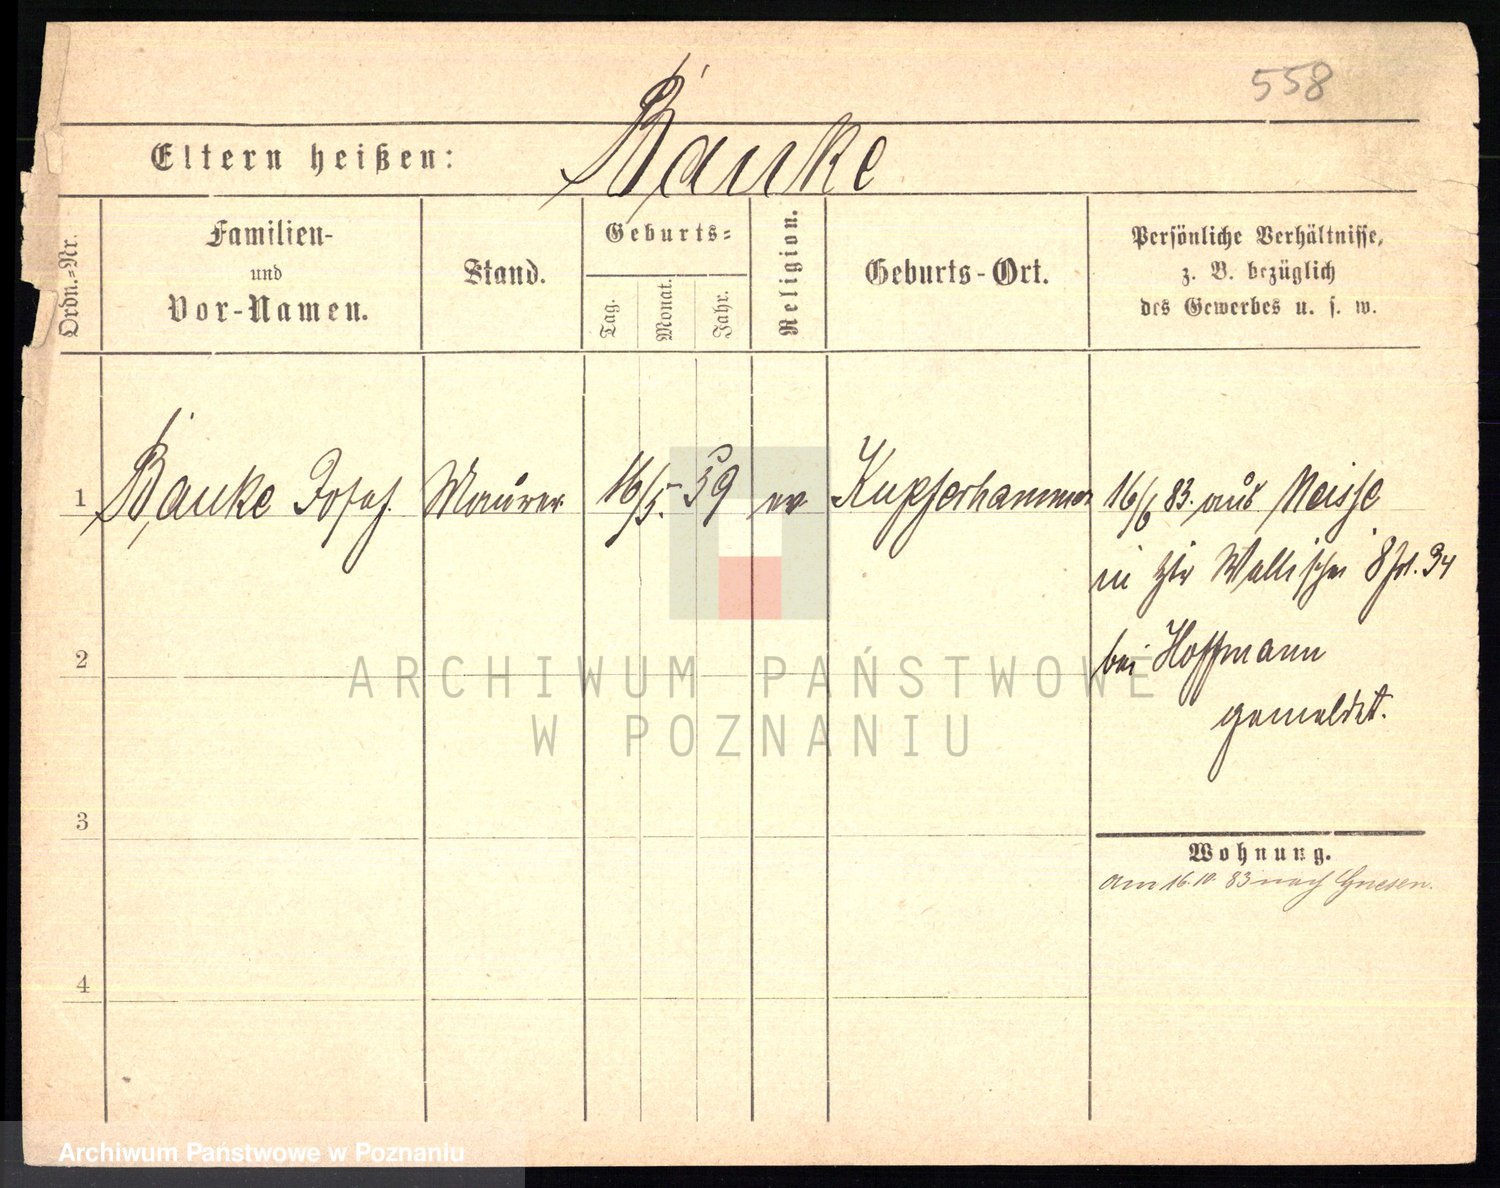 558
Banke
Eltern heißen:
Ordn.-Nr.
Familien-
und
Vor-Namen.
Stand.
Geburts-
Tag.
Monat.
Jahr.
Religion.
Geburts-Ort.
Persönliche Verhältnisse,
z. B. bezüglich
des Gewerbes u. s. w.
1 Banke Josef. Maurer 16/5. 59 ev Kupferhammer 16/6 83. aus Neisse
in Wallischei 8 34
bei Hoffmann
gemeldet.
2
3
4
Wohnung.
am 16.10. 83 nach Gnesen.
ARCHIWUM PAŃSTWOWE
W POZNANIU
Archiwum Państwowe w Poznaniu